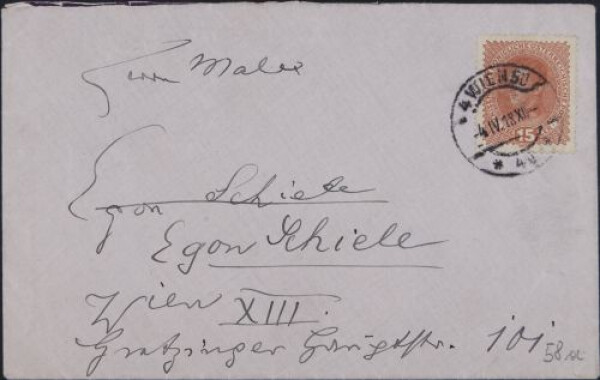 Herrn Maler
Egon Schiele
Egon Schiele
Wien XIII.
Gratzinger Hauptstr. 101
58 a
4 WIEN 50
-4.IV.18 XI-
* 4d *
15